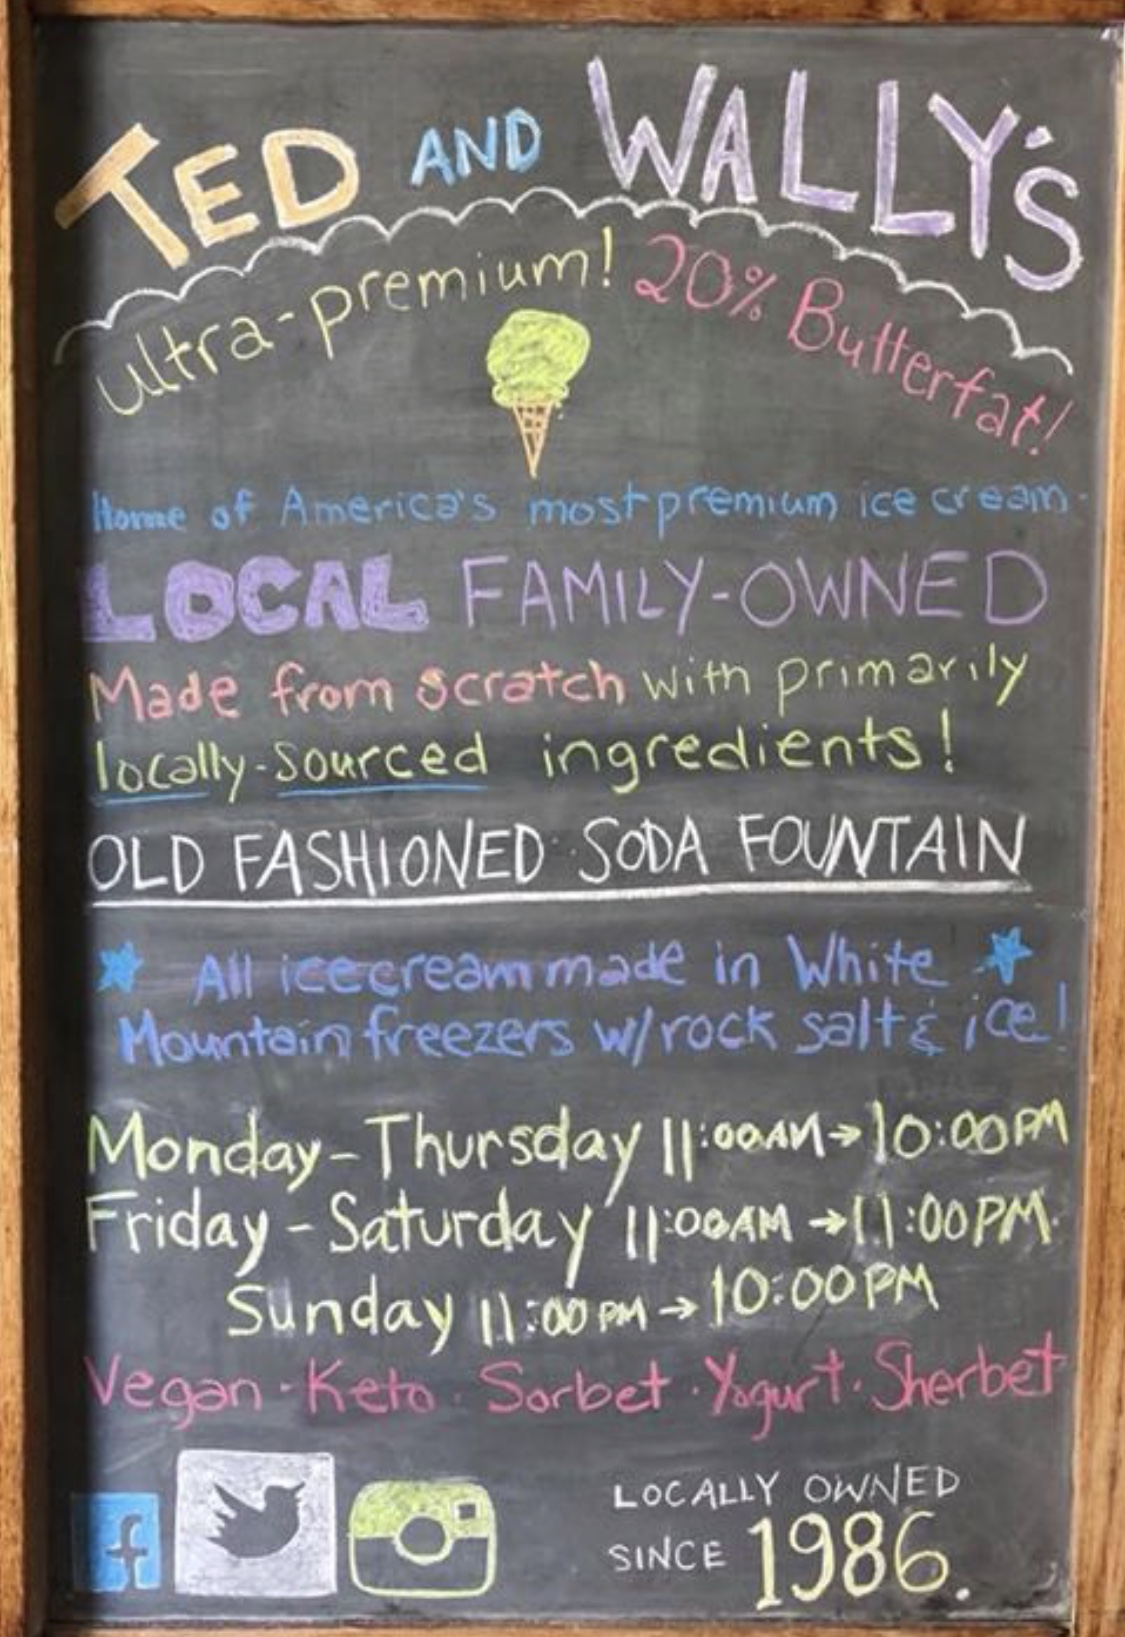 TED AND WALLY'S
ultra-premium! 20% Butterfat!
Home of America's most premium ice cream
LOCAL FAMILY-OWNED
Made from scratch with primarily
locally-sourced ingredients!
OLD FASHIONED SODA FOUNTAIN
All ice cream made in White
Mountain freezers w/rock salt & ice!
Monday-Thursday 11:00AM→10:00PM
Friday-Saturday 11:00AM→11:00PM
Sunday 11:00PM→10:00PM
Vegan · Keto · Sorbet · Yogurt · Sherbet
f
LOCALLY OWNED
SINCE 1986.